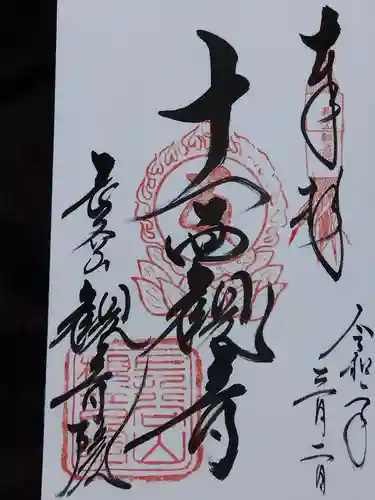 奉拝
令和二年
三月二日
十一面観音
長久山
観音院